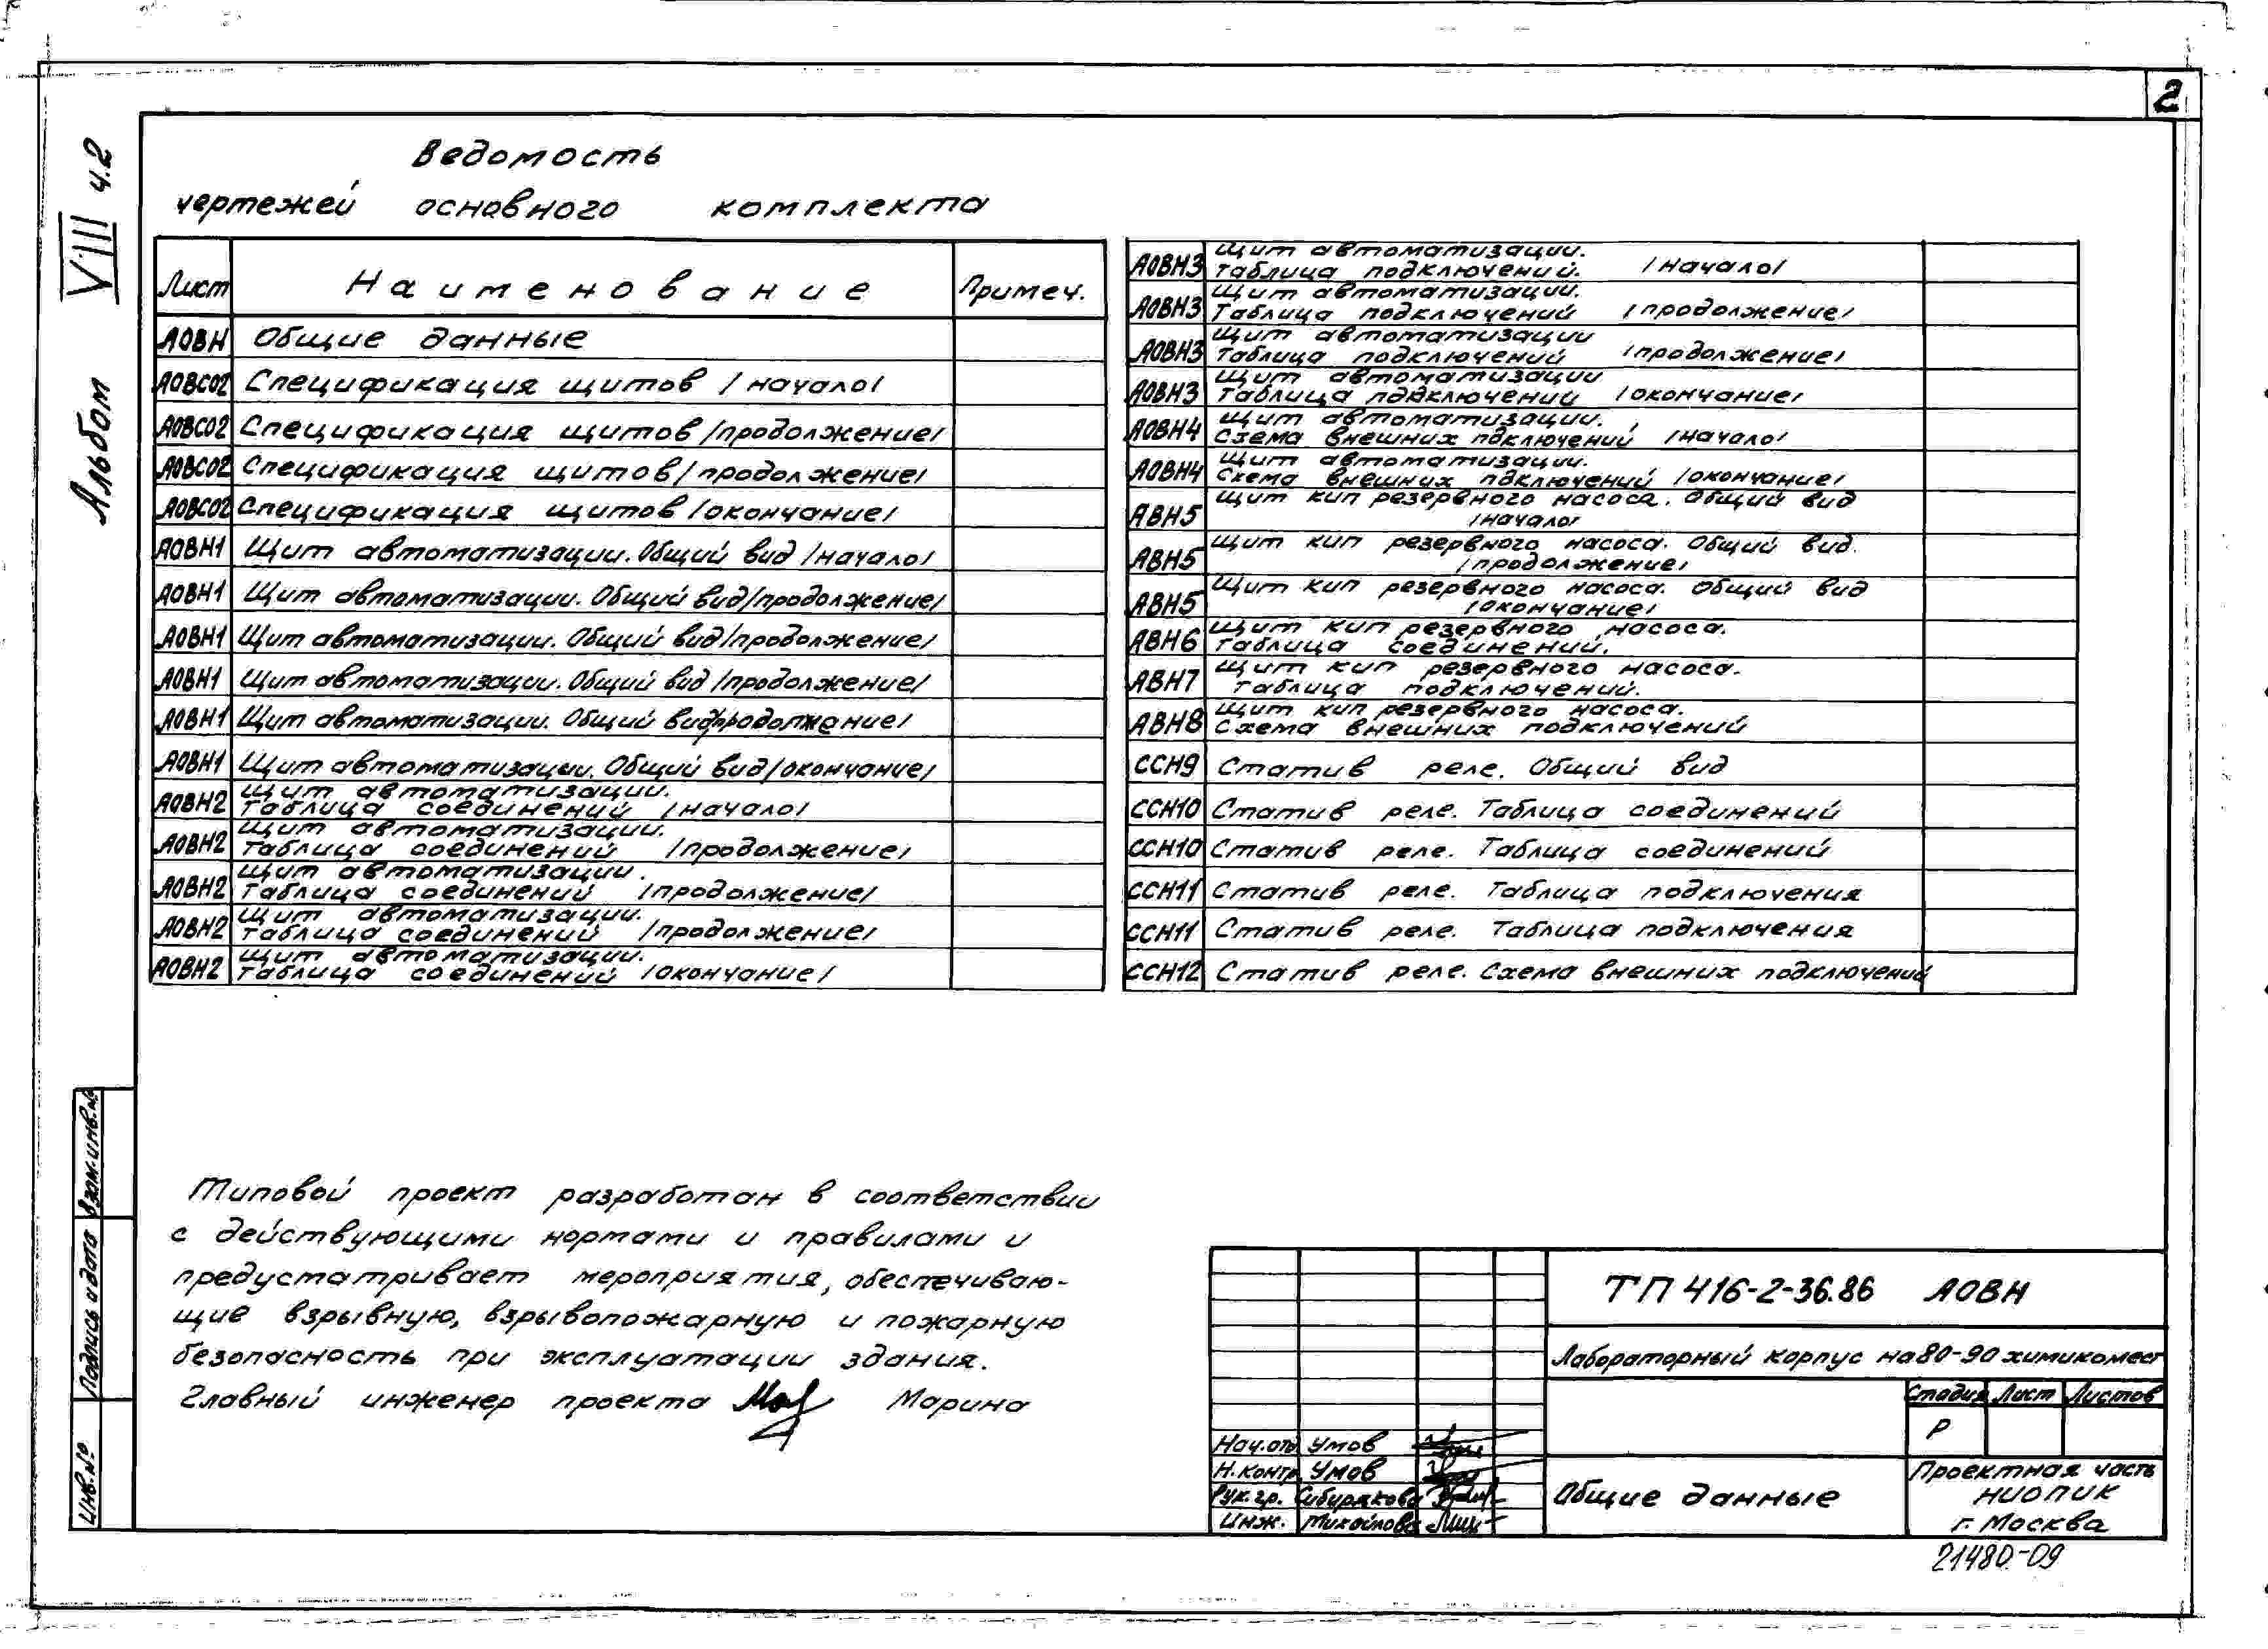 2
Альбом VIII ч.2
Ведомость
чертежей основного комплекта
Лист Наименование Примеч.
АОВН Общие данные
АОВСО2 Спецификация щитов /начало/
АОВСО2 Спецификация щитов /продолжение/
АОВСО2 Спецификация щитов /продолжение/
АОВСО2 Спецификация щитов /окончание/
АОВН1 Щит автоматизации. Общий вид /начало/
АОВН1 Щит автоматизации. Общий вид /продолжение/
АОВН1 Щит автоматизации. Общий вид /продолжение/
АОВН1 Щит автоматизации. Общий вид /продолжение/
АОВН1 Щит автоматизации. Общий вид /продолжение/
АОВН1 Щит автоматизации. Общий вид /окончание/
АОВН2 Щит автоматизации.
Таблица соединений /начало/
АОВН2 Щит автоматизации.
Таблица соединений /продолжение/
АОВН2 Щит автоматизации.
Таблица соединений /продолжение/
АОВН2 Щит автоматизации.
Таблица соединений /продолжение/
АОВН2 Щит автоматизации.
Таблица соединений /окончание/
АОВН3 Щит автоматизации.
Таблица подключений. /начало/
АОВН3 Щит автоматизации.
Таблица подключений /продолжение/
АОВН3 Щит автоматизации
Таблица подключений /продолжение/
АОВН3 Щит автоматизации
Таблица подключений /окончание/
АОВН4 Щит автоматизации.
Схема внешних пдключений /начало/
АОВН4 Щит автоматизации.
Схема внешних пдключений /окончание/
АВН5 Щит кип резервного насоса. Общий вид
/начало/
АВН5 Щит кип резервного насоса. Общий вид.
/продолжение/
АВН5 Щит кип резервного насоса. Общий вид
/окончание/
АВН6 Щит кип резервного насоса.
Таблица соединений.
АВН7 Щит кип резервного насоса.
Таблица подключений.
АВН8 Щит кип резервного насоса.
Схема внешних подключений
ССН9 Статив реле. Общий вид
ССН10 Статив реле. Таблица соединений
ССН10 Статив реле. Таблица соединений
ССН11 Статив реле. Таблица подключения
ССН11 Статив реле. Таблица подключения
ССН12 Статив реле. Схема внешних подключений
Типовой проект разработан в соответствии
с действующими нормами и правилами и
предусматривает мероприятия, обеспечиваю-
щие взрывную, взрывопожарную и пожарную
безопасность при эксплуатации здания.
Главный инженер проекта Марина
Взам.инв.№
Подпись и дата
Инв.№
ТП 416-2-36.86 АОВН
Лабораторный корпус на 80-90 химикомест
Стадия Лист Листов
Р
Нач.отд Умов
Н.контр. Умов
Рук.гр. Сибирякова
Инж. Михайлова
Общие данные
Проектная часть
НИОПИК
г. Москва
21480-09